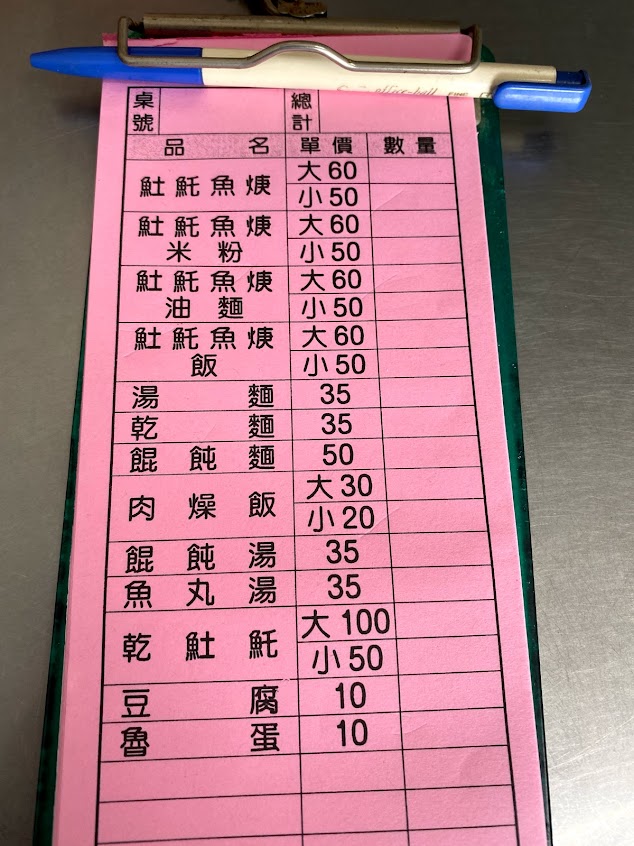 桌號 總計
品名 單價 數量
𩵚魠魚焿 大60
小50
𩵚魠魚焿 大60
米粉 小50
𩵚魠魚焿 大60
油麵 小50
𩵚魠魚焿 大60
飯 小50
湯麵 35
乾麵 35
餛飩麵 50
肉燥飯 大30
小20
餛飩湯 35
魚丸湯 35
乾𩵚魠 大100
小50
豆腐 10
魯蛋 10